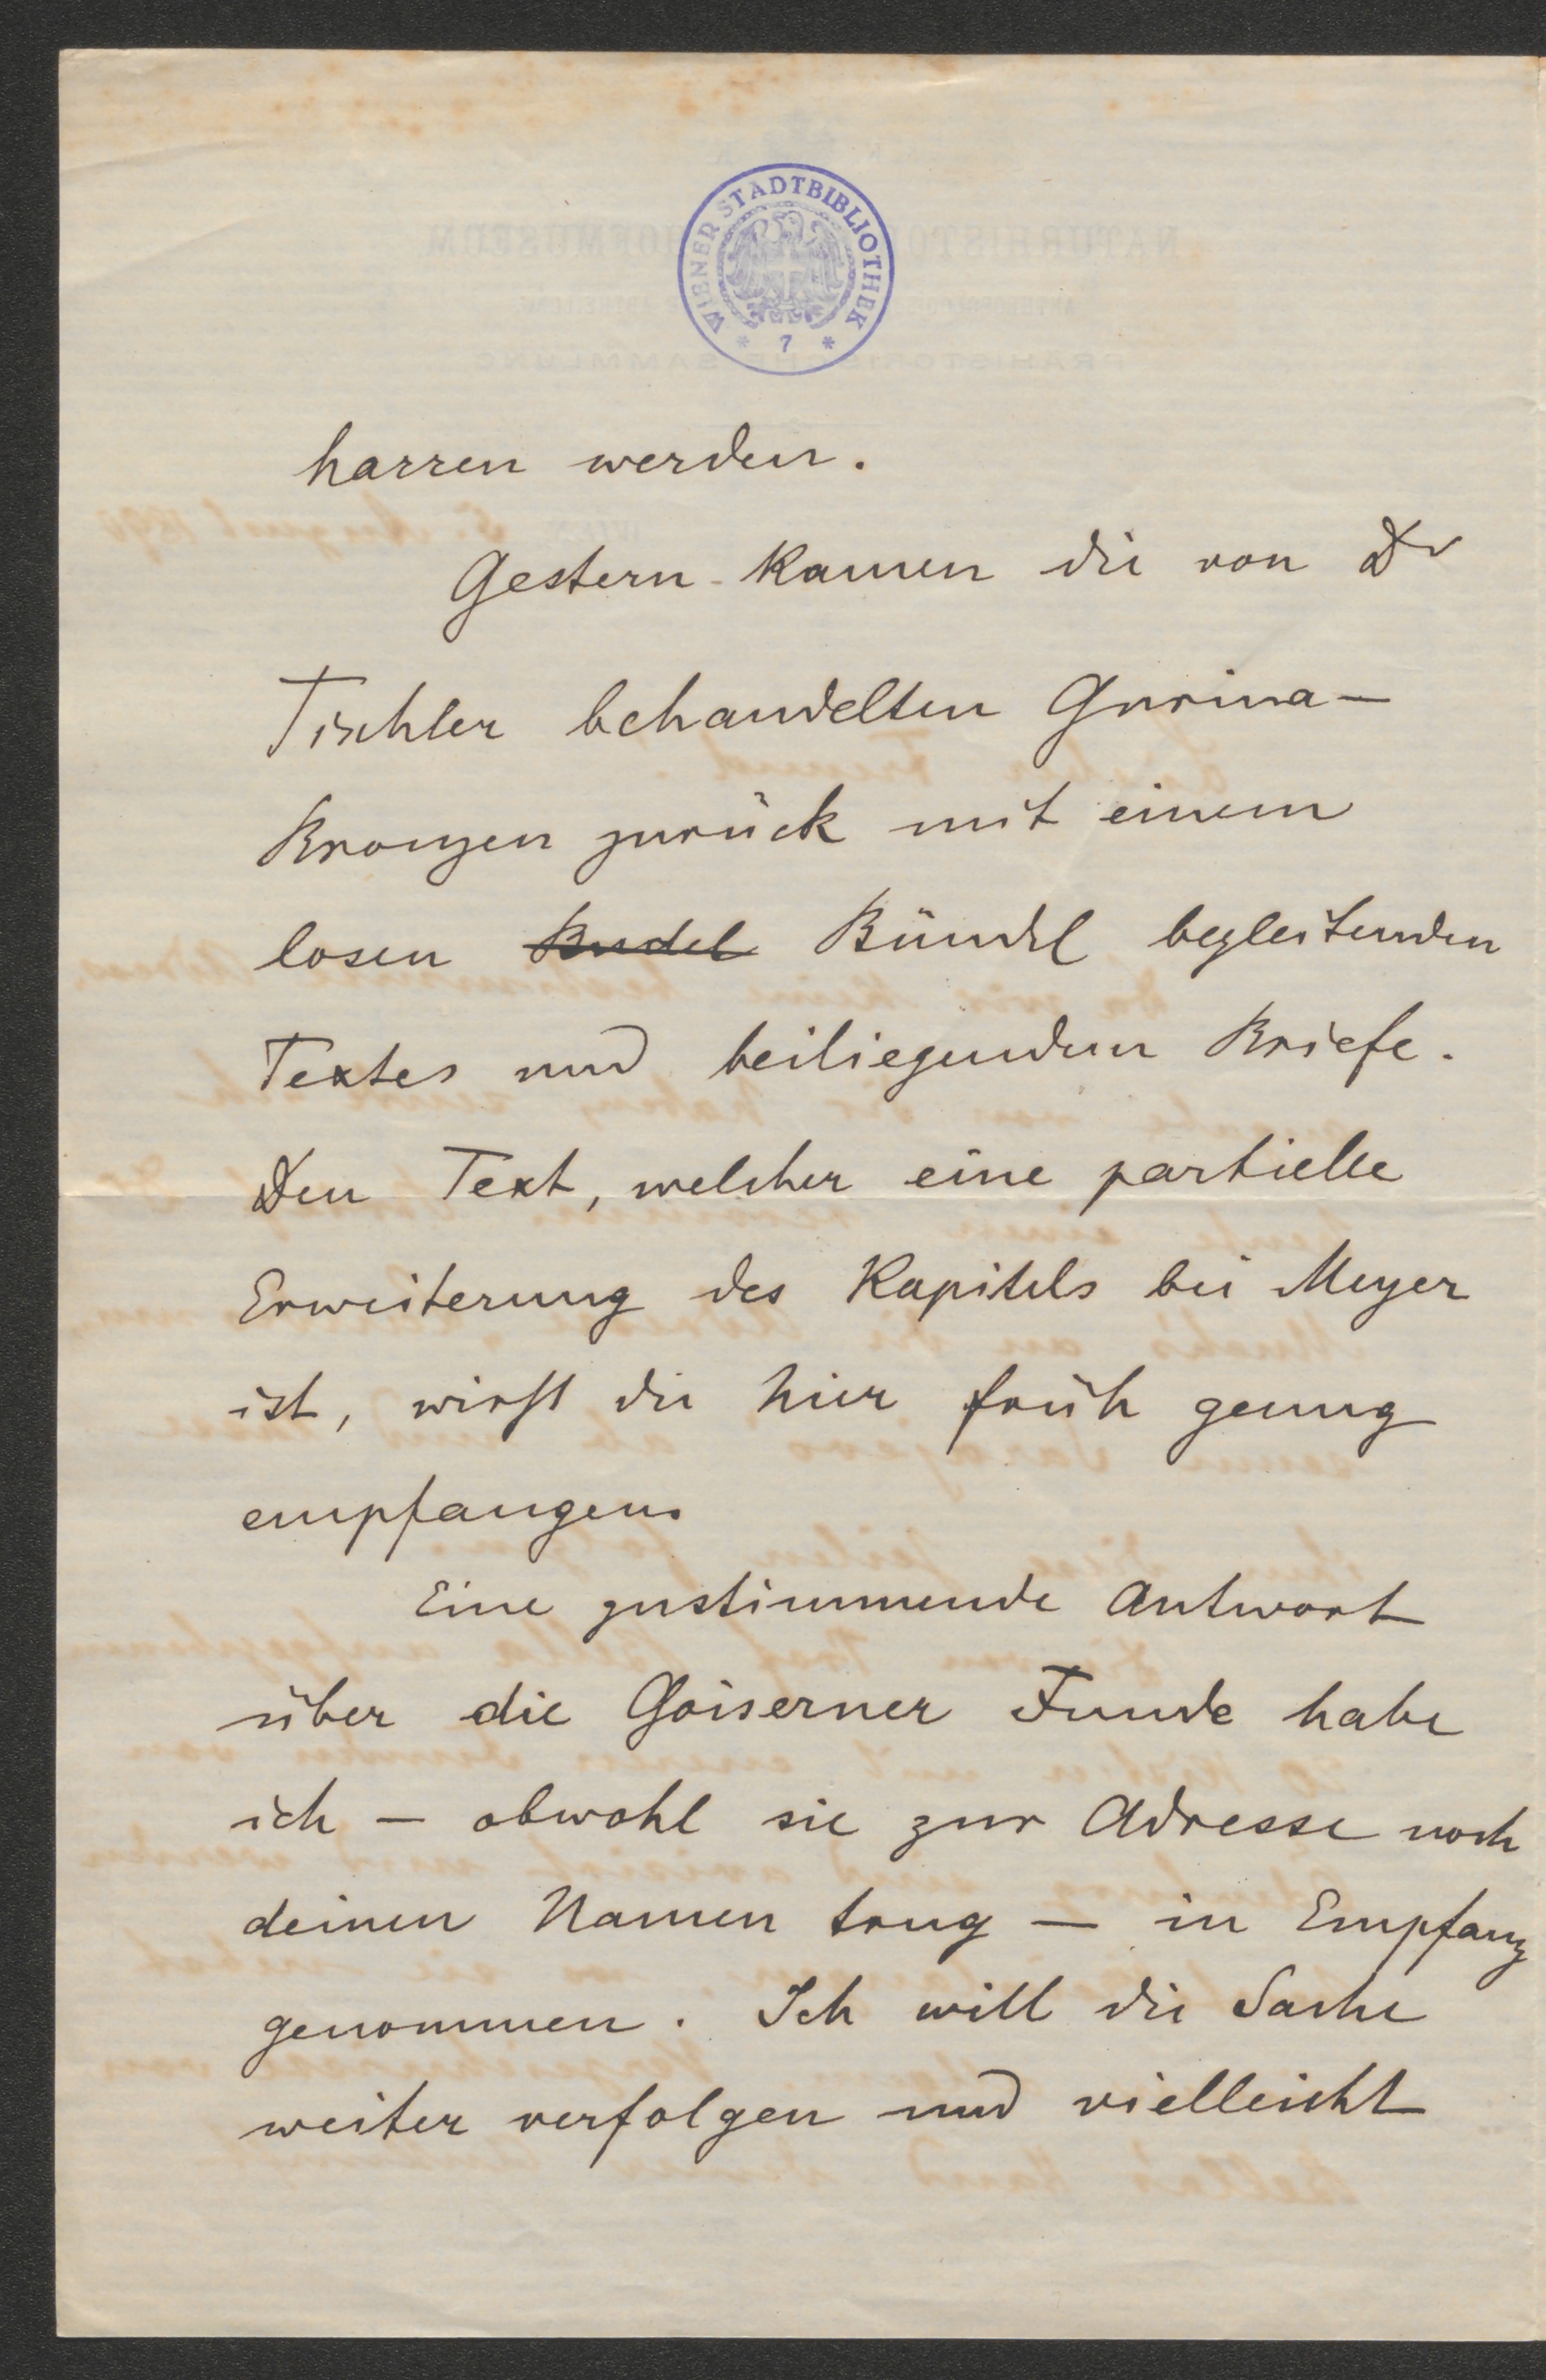 WIENER STADTBIBLIOTHEK
* 7 *
harren werden.
Gestern kamen die von Dr
Tischler behandelten Gurina-
Bronzen zurück mit einem
losen Budel Bündel begleitenden
Textes und beiliegendem Briefe.
Den Text, welcher eine partielle
Erweiterung des Kapitels bei Meyer
ist, wirst du hier früh genug
empfangen.
Eine zustimmende Antwort
über die Goiserner Funde habe
ich – obwohl sie zur Adresse noch
deinen Namen trug – in Empfang
genommen. Ich will die Sache
weiter verfolgen und vielleicht